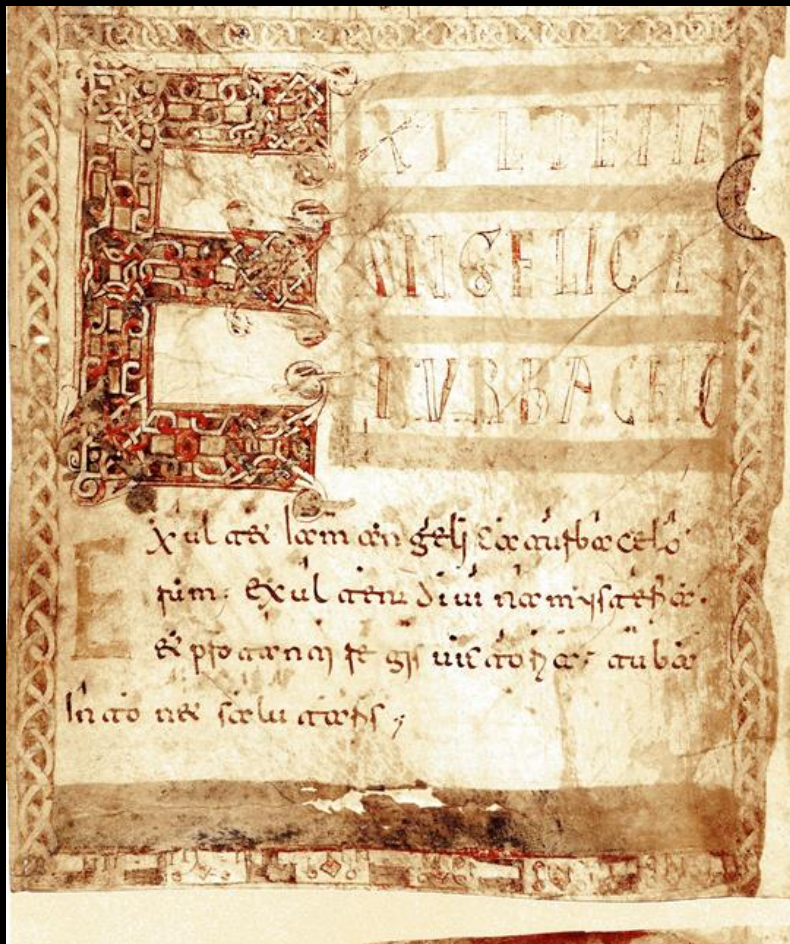 EXULTET IA
ANGELICA
TURBA CELO
Exultet Iam angelica turba celo
rum. Exultent divina mysteria.
Et pro tanti regis victoria. tuba
Intonet salutaris;